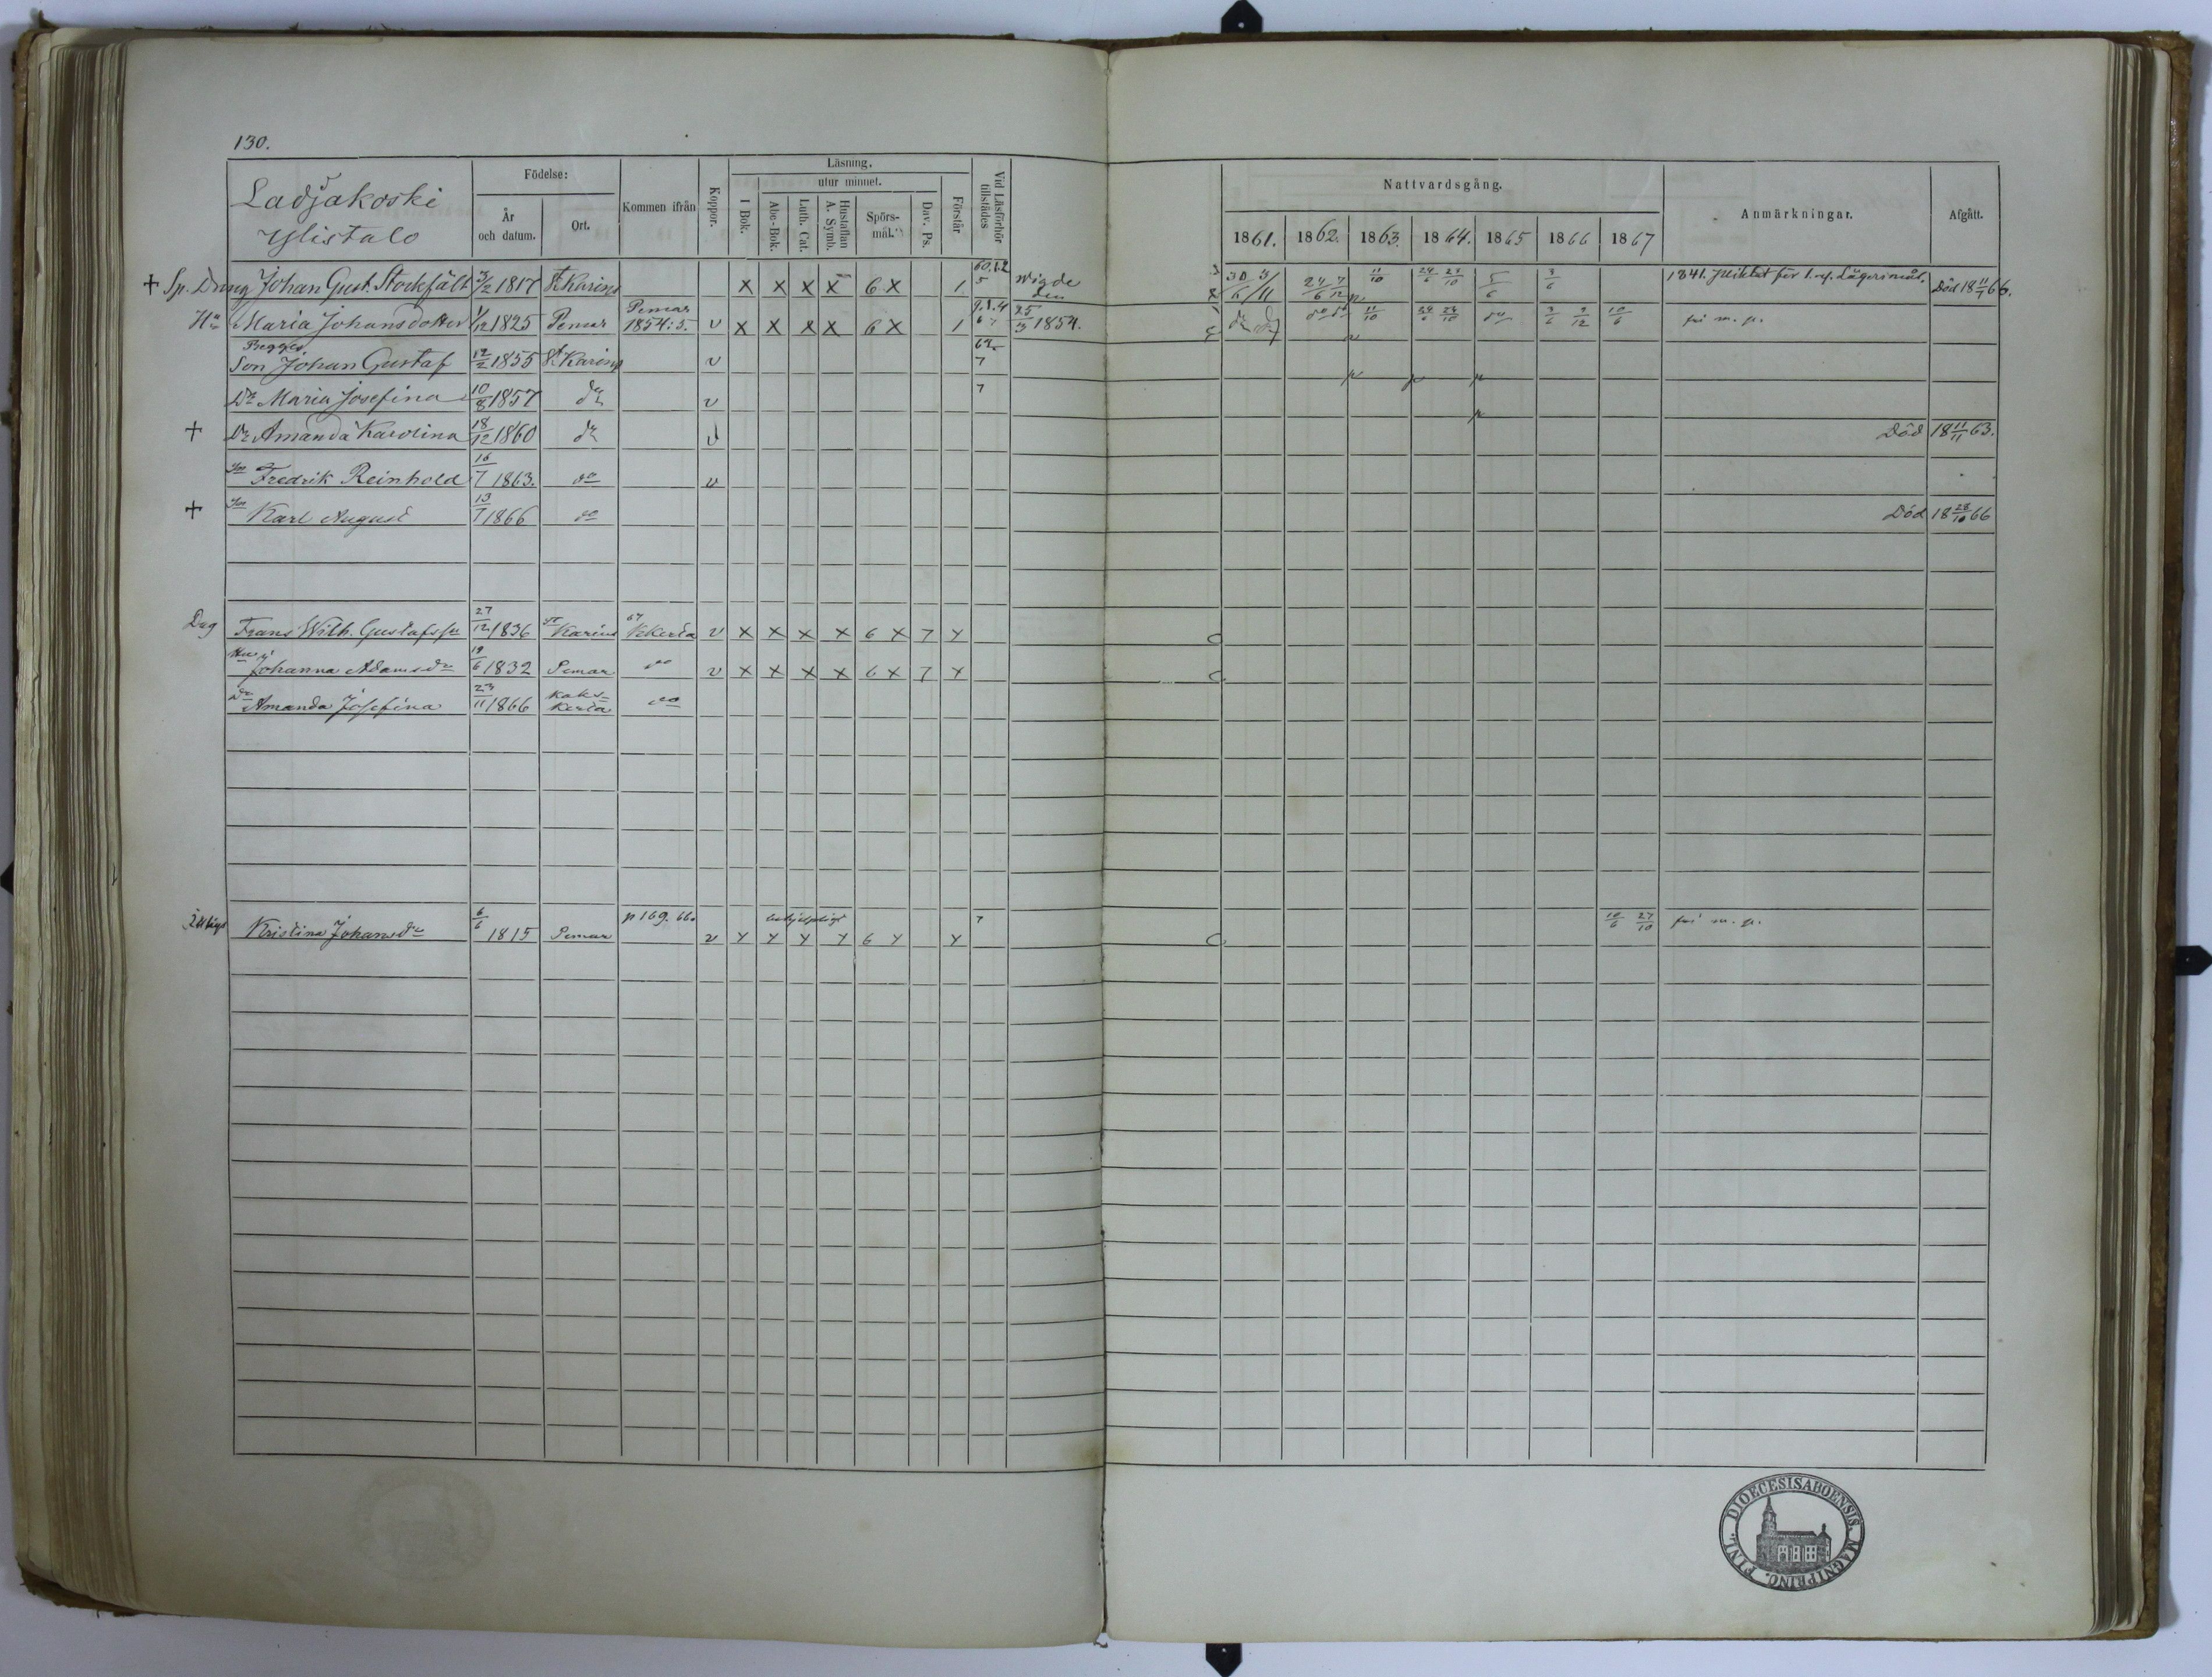 130.
Ladjakoski
Ylistalo
Födelse:
År och datum.
Ort.
Kommen ifrån
Koppor.
Läsning.
I Bok.
utur minnet.
Abc-Bok.
Luth. Cat.
Hustaflan A. Symb.
Spörs-mål.
Dav. Ps.
Förstår
Vid Läsförhör tillstädes
Nattvardsgång.
1861. 1862. 1863. 1864. 1865 1866 1867
Anmärkningar.
Afgått.
+ Sp. Dräng Johan Gust. Stockfält 3/2 1817 St Karins X X X X 6 X 1 60.62 5 Wigde den 30/6 3/11 24/6 7/12 11/10 24/6 23/10 5/6 3/6 1841. pliktat för 1. Lägersmål. Död 18 11/7 66.
Hu Maria Johansdotter 1/12 1825 Pemar Pemar 1854:5. v X X X X 6 X 1 25/3 1854. do do 11/10 do 3/6 9/12 10/6 fri m. p.
Begges
Son Johan Gustaf 12/2 1855 St Karins v 7
Dr Maria Josefina 10/8 1857 do v 7
+ Dr Amanda Karolina 18/12 1860 do v Död 18 11/11 63.
Son Fredrik Reinhold 16/7 1863. do v
+ Son Karl August 13/7 1866 do Död 18 28/10 66
Drg Frans Wilh. Gustafsson 27/12 1836 St Karins 67 KKerta v X X X X 6 X 7 Y
Hu Johanna Adamsdr 19/6 1832 Pemar do v X X X X 6 X 7 Y
Dr Amanda Josefina 23/11 1866 Kaks-kerta do
Kristina Johansdr 6/6 1815 Pemar p 169. 66. v Y Y Y Y 6 Y Y 7 10/6 27/10 fri m. p.
DIOECESIS ABOENSIS. MAGNI PRINC. FINL.